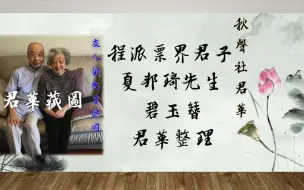 秋聲社君莘
程派票界君子
夏邦琦先生
碧玉簪
君莘整理
君莘藏圖